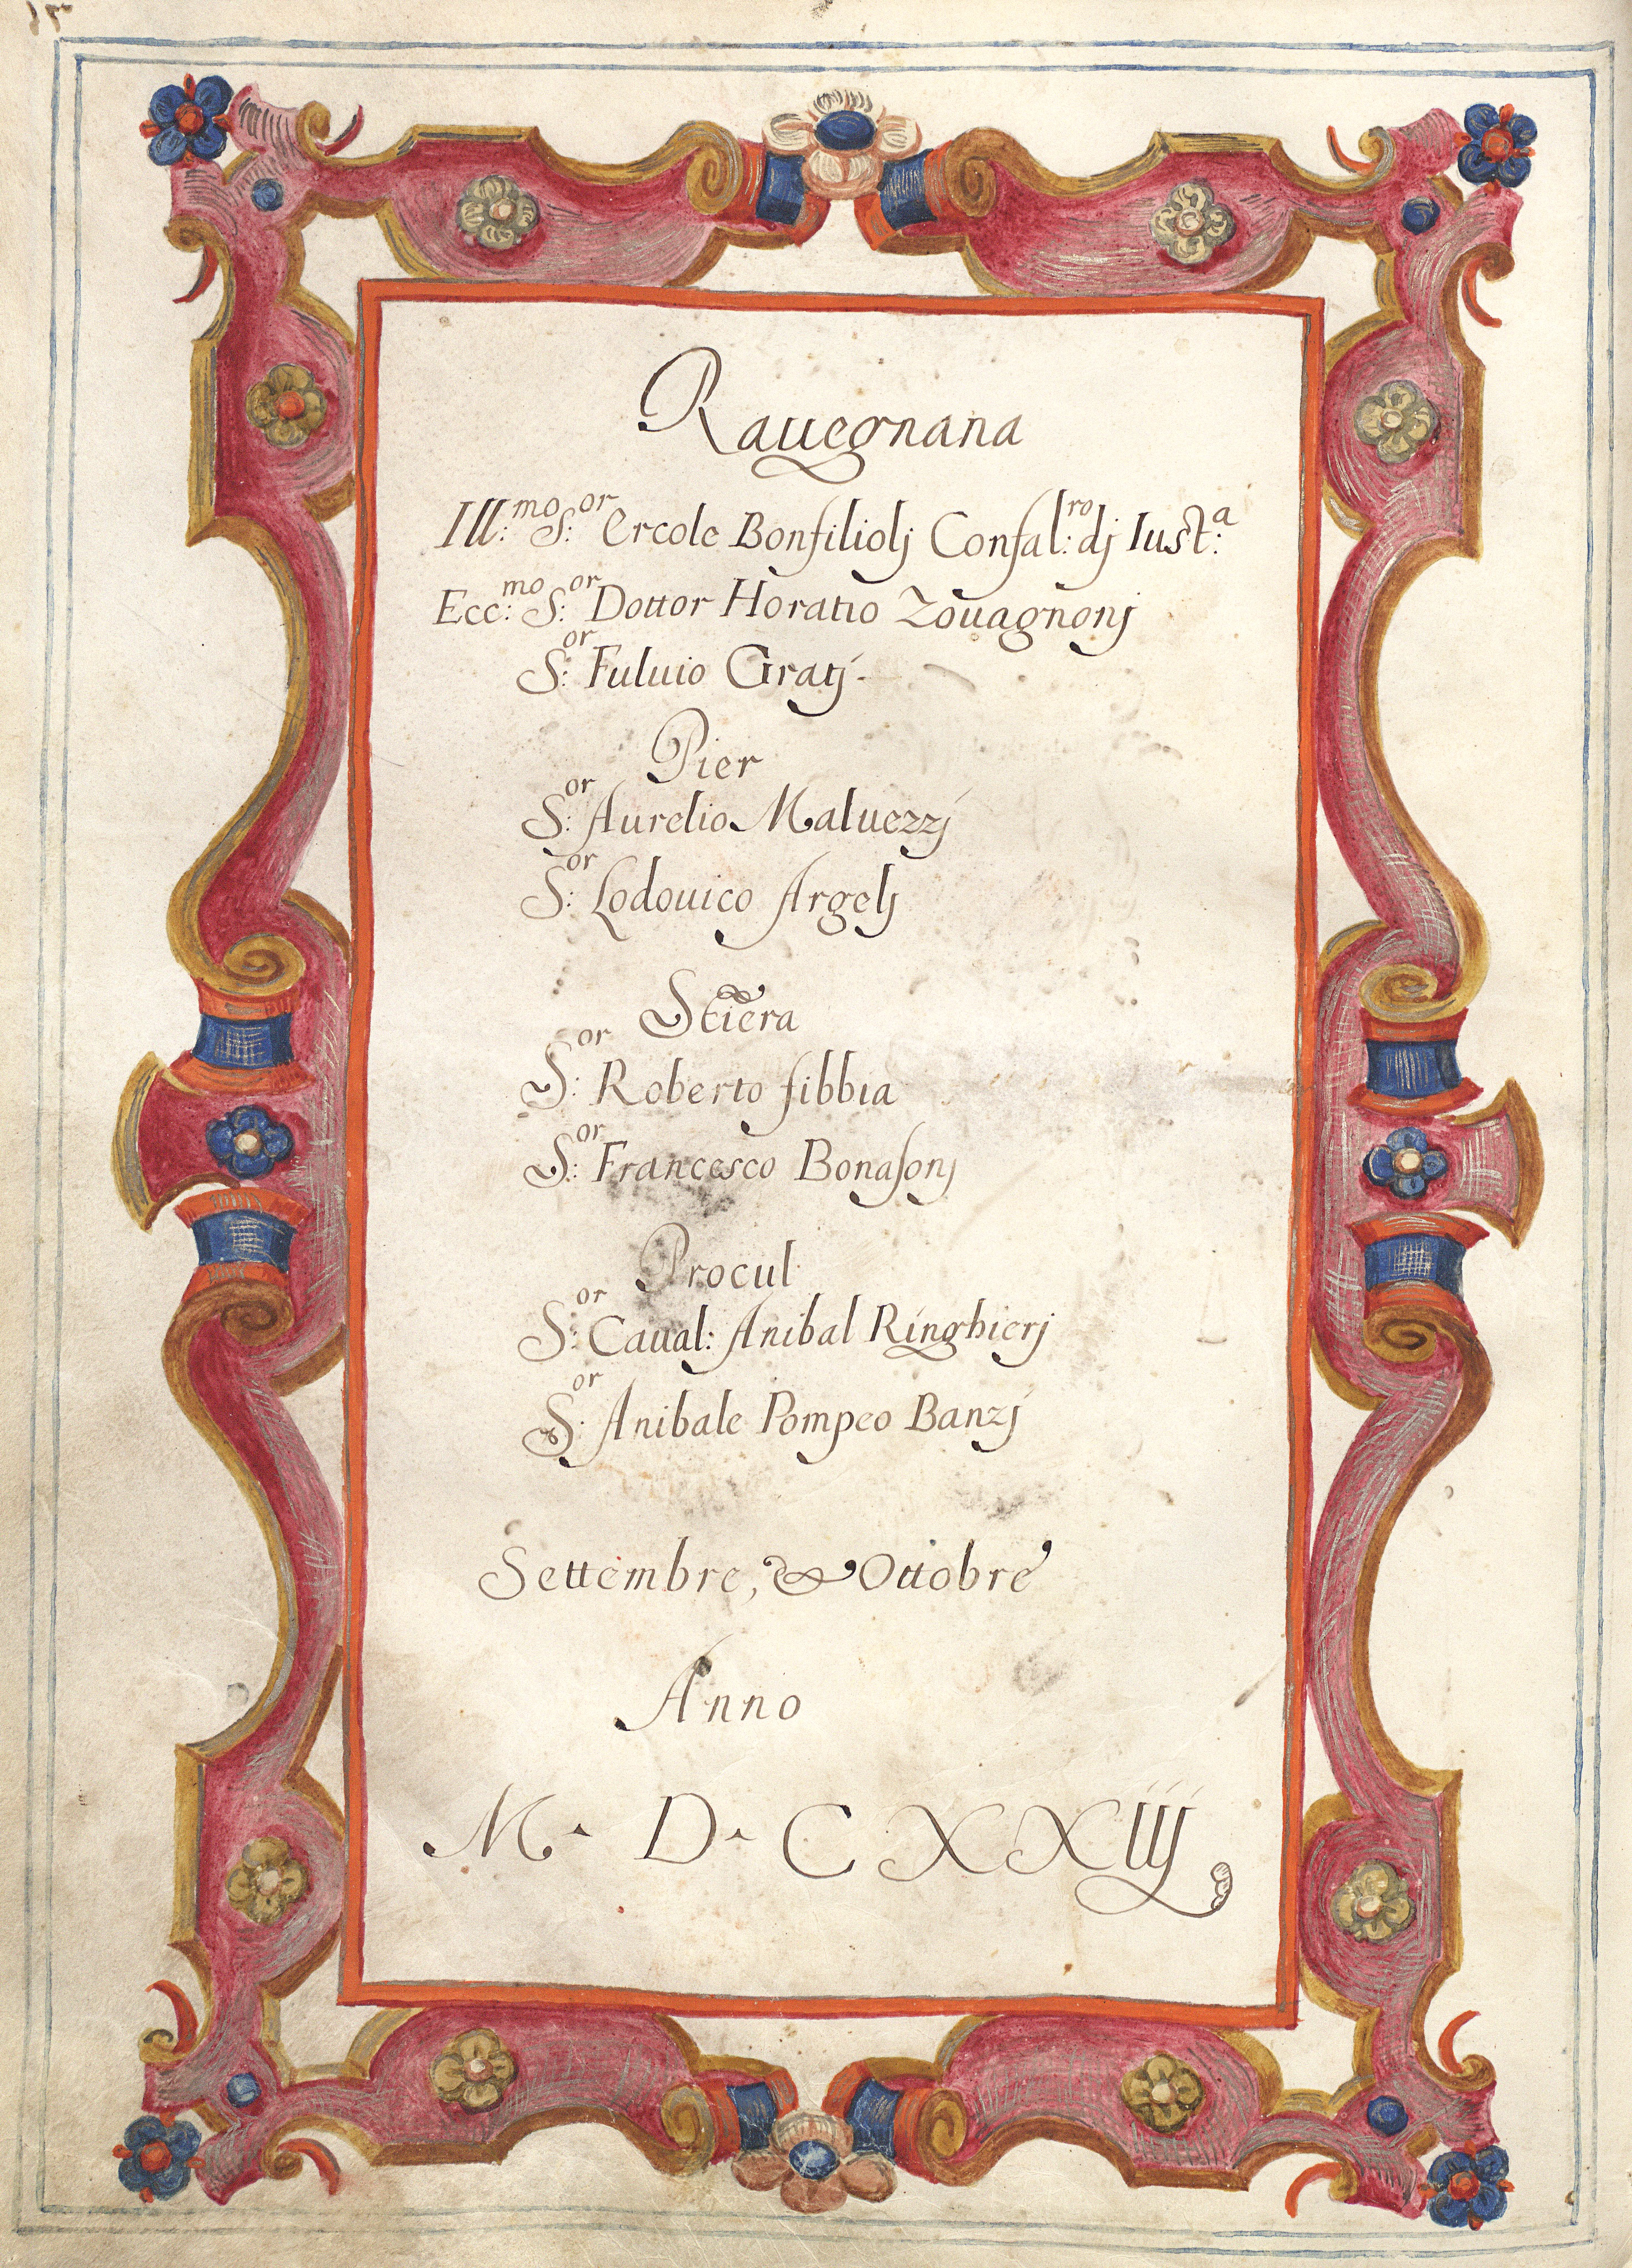 Rauegnana
Ill:mo S:or Ercole Bonfiliolj Confal:ro dj Iust:a
Ecc:mo S:or Dottor Horatio Zouagnonj
S:or Fuluio Gratj.
Pier
S:or Aurelio Maluezzj
S:or Lodouico Argelj
Stiera
S:or Roberto fibbia
S:or Francesco Bonasonj
Procul
S:or Caual: Anibal Ringhierj
S:or Anibale Pompeo Banzj
Settembre, & Ottobre
Anno
M. D. C XXIIj